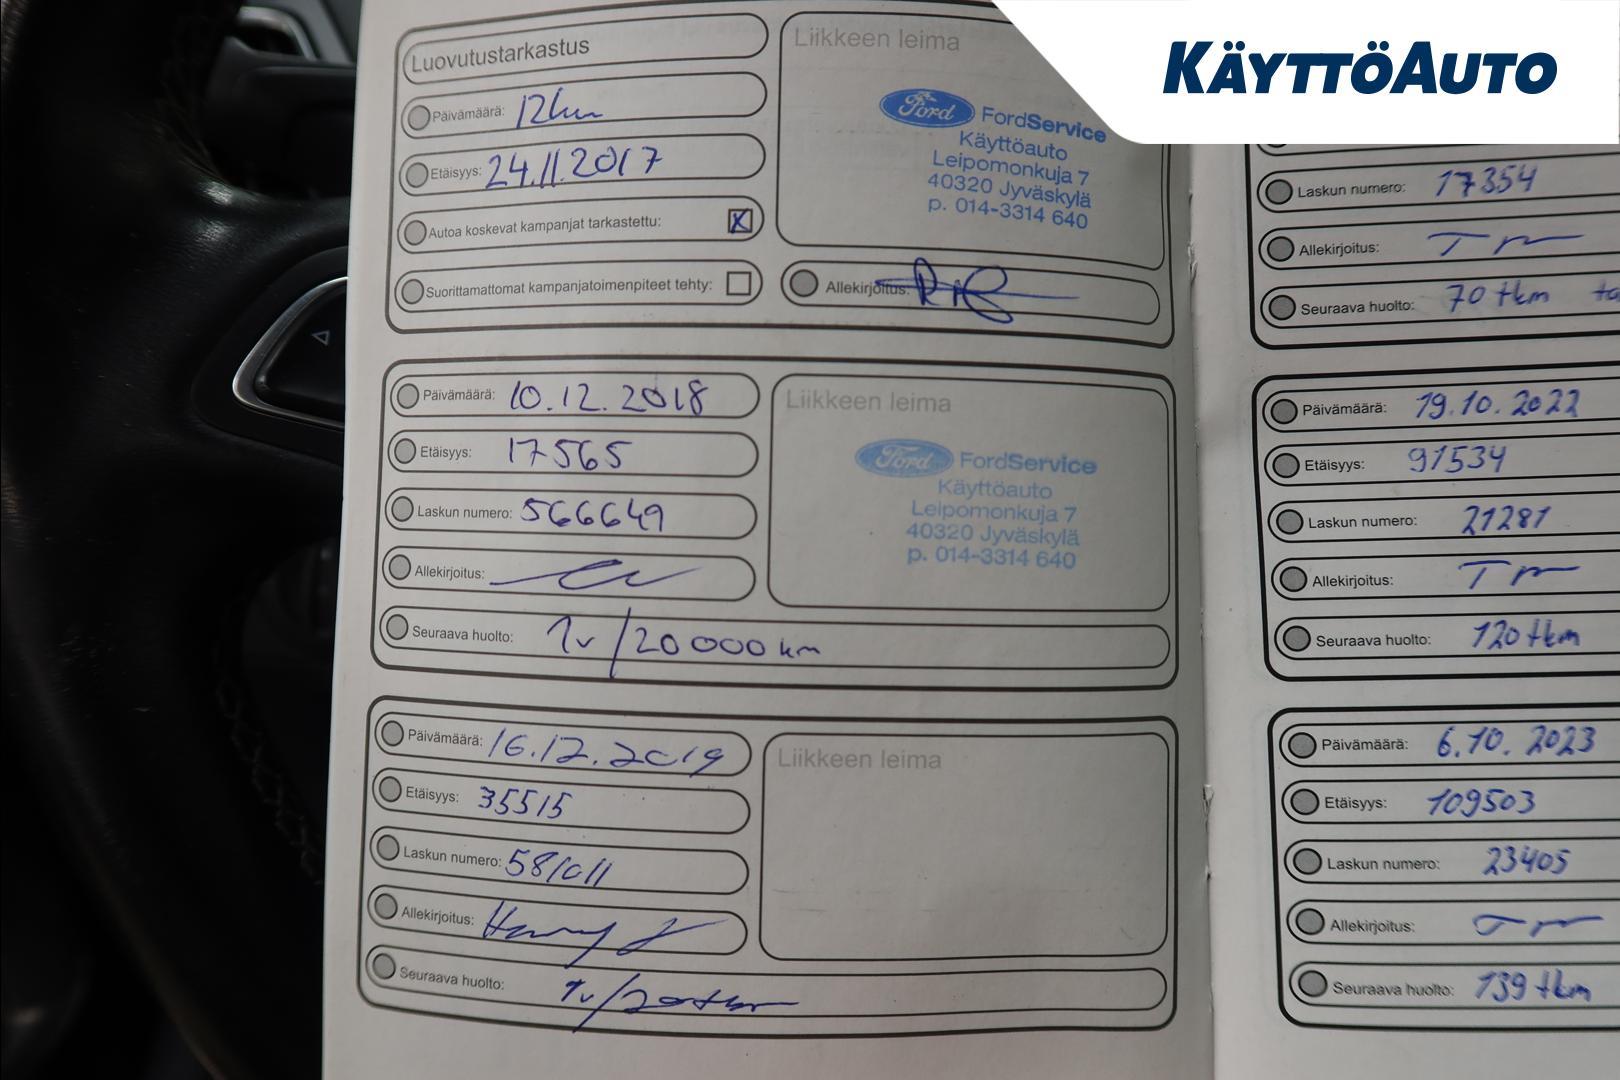 KÄYTTÖAUTO
Luovutustarkastus
Päivämäärä: 12km
Etäisyys: 24.11.2017
Autoa koskevat kampanjat tarkastettu: X
Suorittamattomat kampanjatoimenpiteet tehty:
Liikkeen leima
Ford FordService
Käyttöauto
Leipomonkuja 7
40320 Jyväskylä
p. 014-3314 640
Allekirjoitus:
Päivämäärä: 10.12.2018
Etäisyys: 17565
Laskun numero: 566649
Allekirjoitus:
Seuraava huolto: 1v/20000km
Liikkeen leima
Ford FordService
Käyttöauto
Leipomonkuja 7
40320 Jyväskylä
p. 014-3314 640
Päivämäärä: 16.12.2019
Etäisyys: 35515
Laskun numero: 581011
Allekirjoitus:
Seuraava huolto: 1v/20tkm
Liikkeen leima
Laskun numero: 17354
Allekirjoitus:
Seuraava huolto: 70 tkm
Päivämäärä: 19.10.2022
Etäisyys: 91534
Laskun numero: 21281
Allekirjoitus:
Seuraava huolto: 120 tkm
Päivämäärä: 6.10.2023
Etäisyys: 109503
Laskun numero: 23405
Allekirjoitus:
Seuraava huolto: 139 tkm